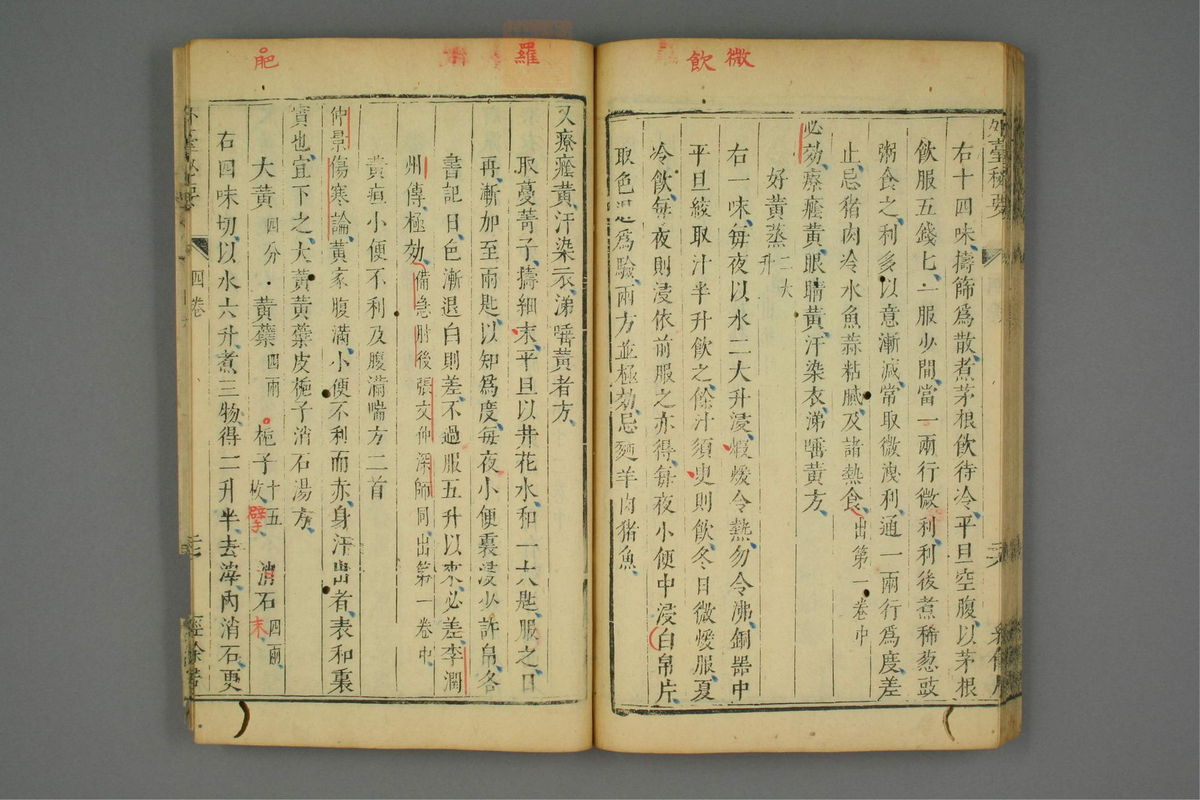 微
飲
外臺秘要
右十四味擣篩為散煮茅根飲待冷平旦空腹以茅根
飲服五錢七一服少間當一兩行微利利後煮稀葱豉
粥食之利多以意漸減常取微溲利通一兩行爲度差
止忌猪肉冷水魚蒜粘膩及諸熱食出第一卷中
必効療癊黃眼睛黃汗染衣涕唾黃方
好黃蒸二大升
右一味每夜以水二大升浸煖令熱勿令沸銅噐中
平旦絞取汁半升飲之餘汁須臾則飲冬日微煖服夏
冷飲每夜則浸依前服之亦得每夜小便中浸白帛片
取色退爲驗兩方並極効忌麵羊肉猪魚
羅
又療癊黃汗染衣涕唾黃者方
取蔓菁子擣細末平旦以井花水和一大匙服之日
再漸加至兩匙以知爲度每夜小便裏浸少許帛各
書記日色漸退白則差不過服五升以來必差李潤
州傳極効備急肘後張文仲深師同出第一卷中
黃疸小便不利及腹滿喘方二首
仲景傷寒論黃家腹滿小便不利而赤身汗出者表和裏
實也宜下之大黃黃蘗皮梔子消石湯方
肥
大黃四分 黃蘗四兩 梔子十五枚擘 消石四兩末
右四味切以水六升煮三物得二升半去滓內消石更
四卷